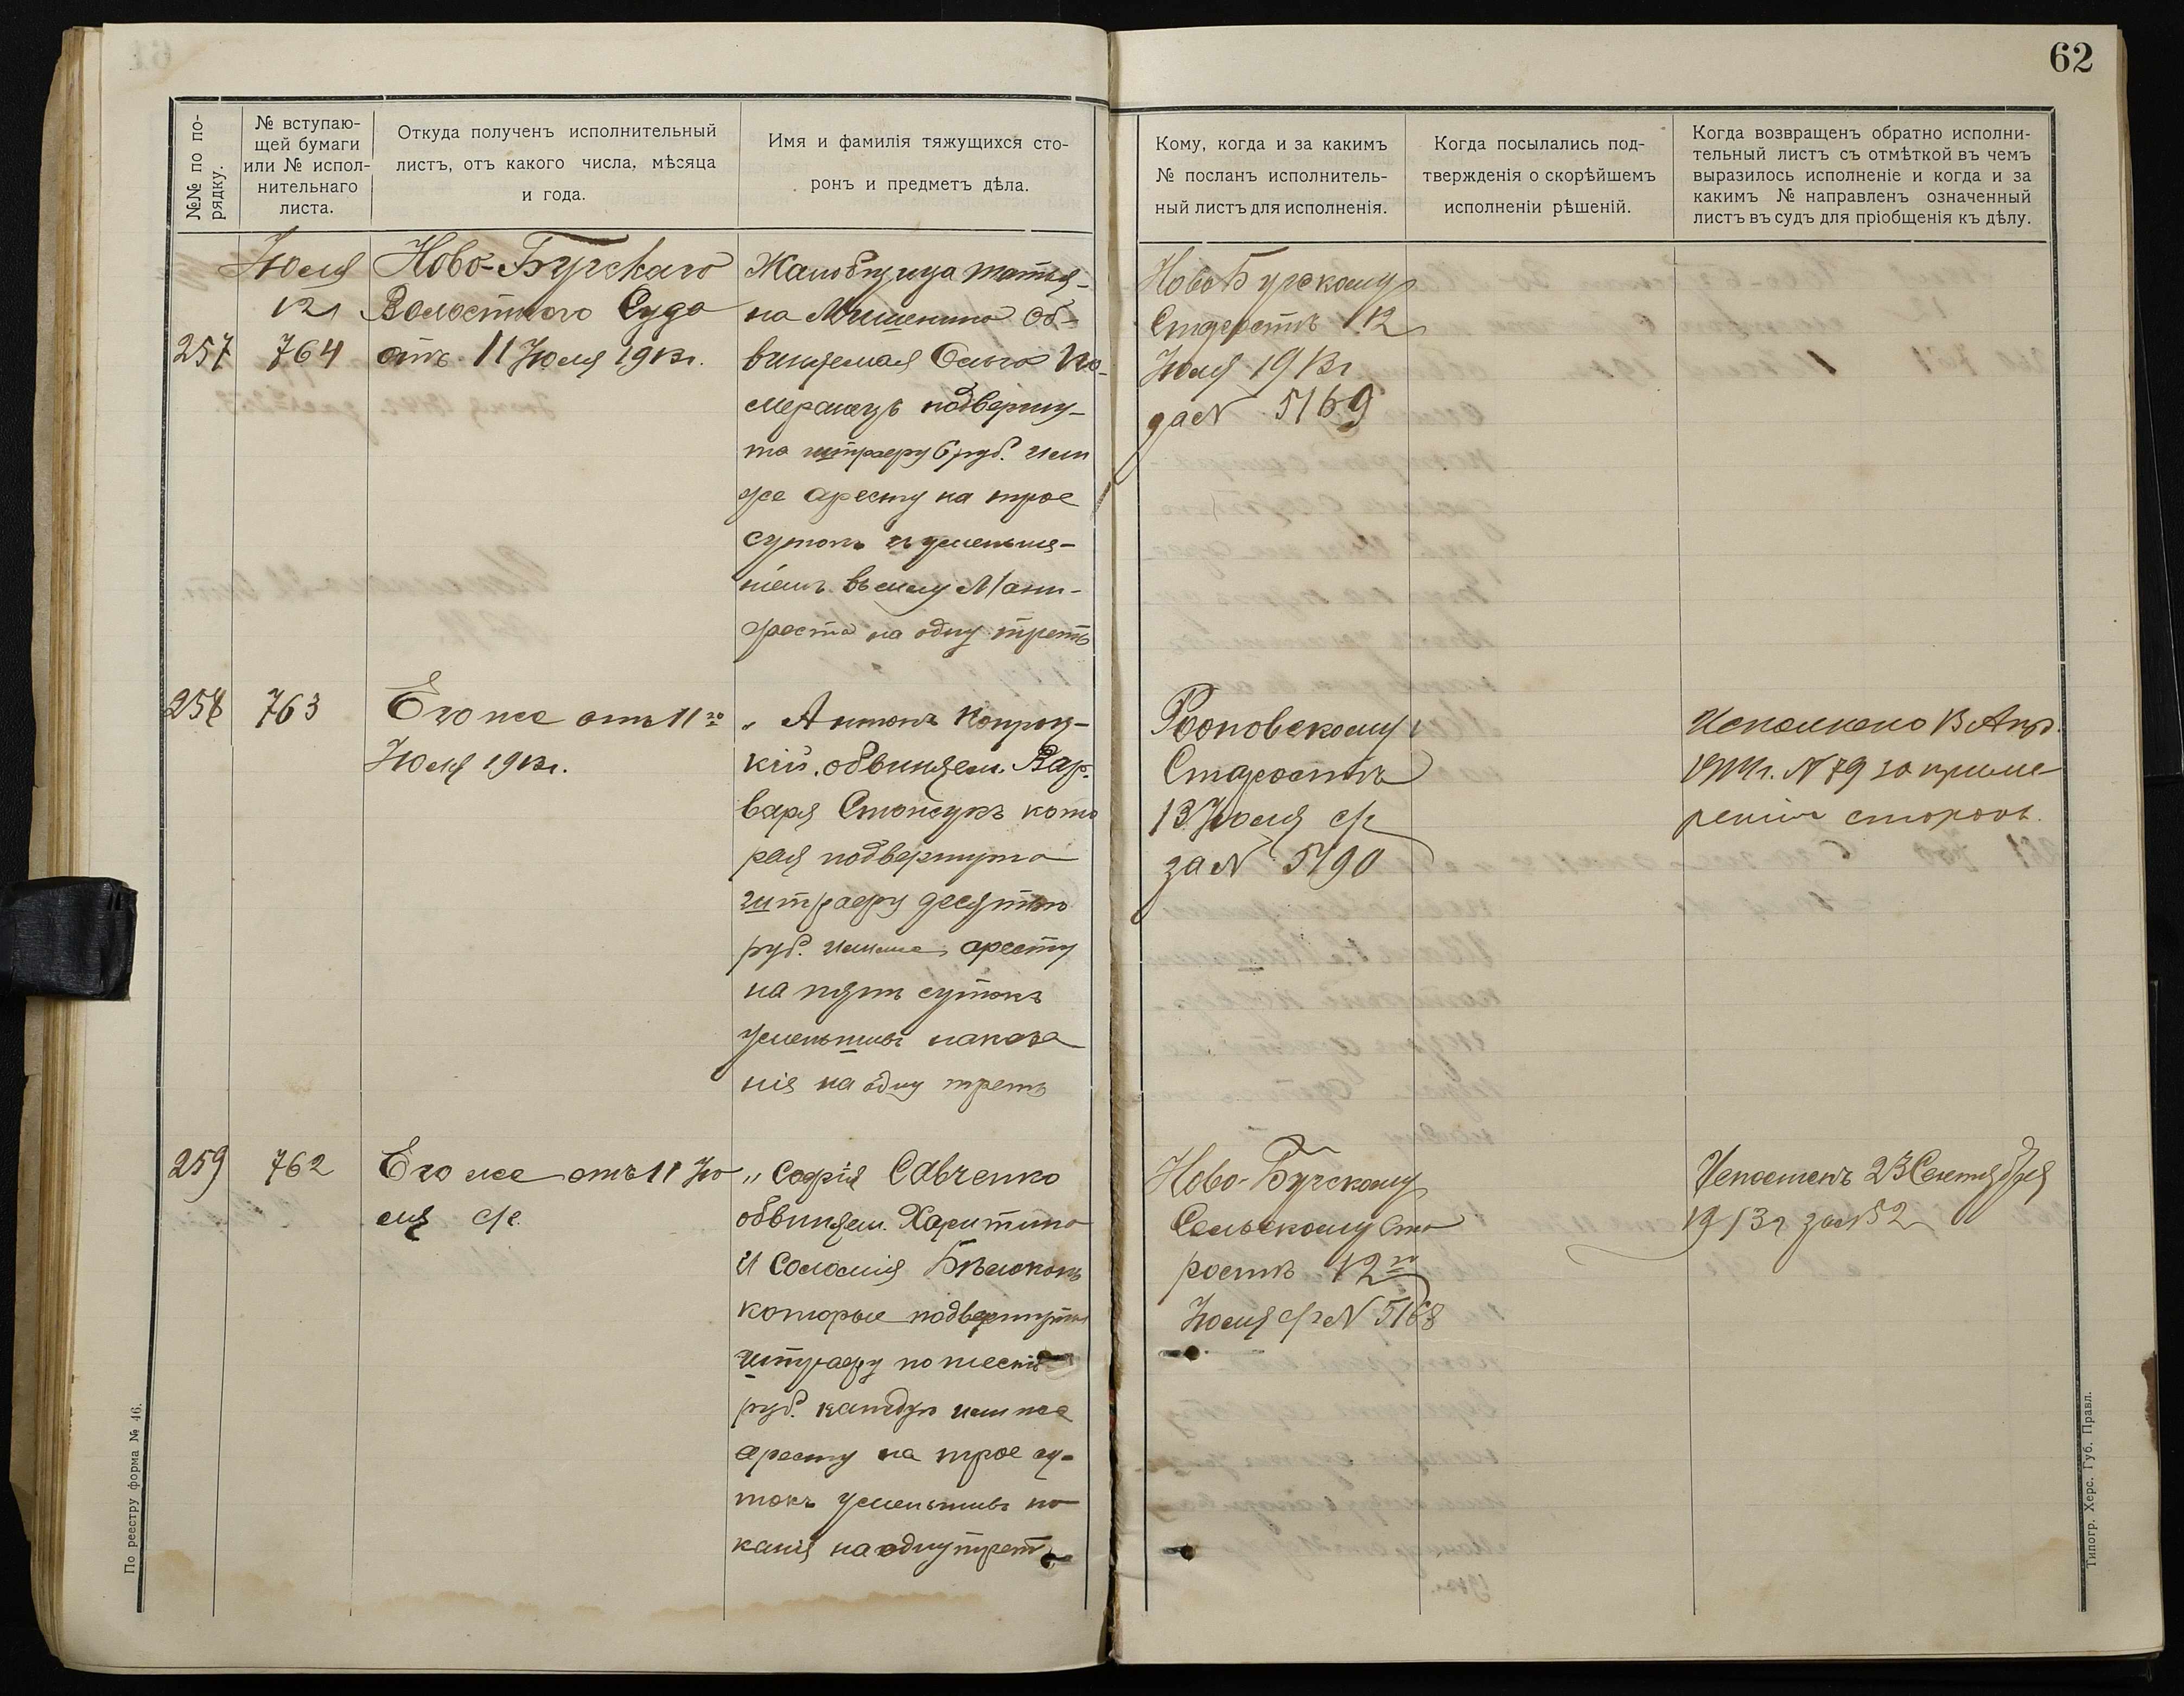 62
№№ по по-
рядку.
№ вступаю-
щей бумаги
или № испол-
нительнаго
листа.
Откуда полученъ исполнительный
листъ, отъ какого числа, мѣсяца
и года.
Имя и фамилія тяжущихся сто-
ронъ и предметъ дѣла.
Кому, когда и за какимъ
№ посланъ исполнитель-
ный листъ для исполненія.
Когда посылались под-
твержденія о скорѣйшемъ
исполненіи рѣшеній.
Когда возвращенъ обратно исполни-
тельный листъ съ отмѣткой въ чемъ
выразилось исполненіе и когда и за
какимъ № направленъ означенный
листъ въ судъ для пріобщенія къ дѣлу.
257
Іюля
12
764
Ново-Бугскаго
Волостного Суда
отъ 11 Іюля 1913г.
Жалобщица Татья-
на Об-
виняемая
подверну-
та штрафу 6 руб. или
же аресту на трое
сутокъ
ніемъ въ силу Мани-
феста на одну треть
Ново Бугскому
Старостѣ 12
Іюля 1913г
за № 5169
258
763
Его же отъ 11го
Іюля 1913г.
„ Антонъ
кій. обвиняем. Вар-
вара кото
рая подвергнута
штрафу десятью
руб. или же аресту
на пять сутокъ
уменьшивъ наказа
нія на одну треть
Старостѣ
13 Іюля с/г
за № 5190
Исполнено 13 Апр.
1914г. № 79 за приме-
реніемъ сторонъ.
259
762
Его же отъ 11 Ію
ля с/г.
„ Софія Савченко
обвиняем. Харитина
и Соломія
которые подвергнуты
штрафу по шести
руб. каждую или же
аресту на трое су-
токъ уменьшивъ на
канія на одну треть
Ново-Бугскому
Сельскому Ста
ростѣ 12го
Іюля с/г № 5168
Исполненъ 23 Сентября
1913г за № 52
По реестру форма № 46.
Типогр. Херс. Губ. Правл.